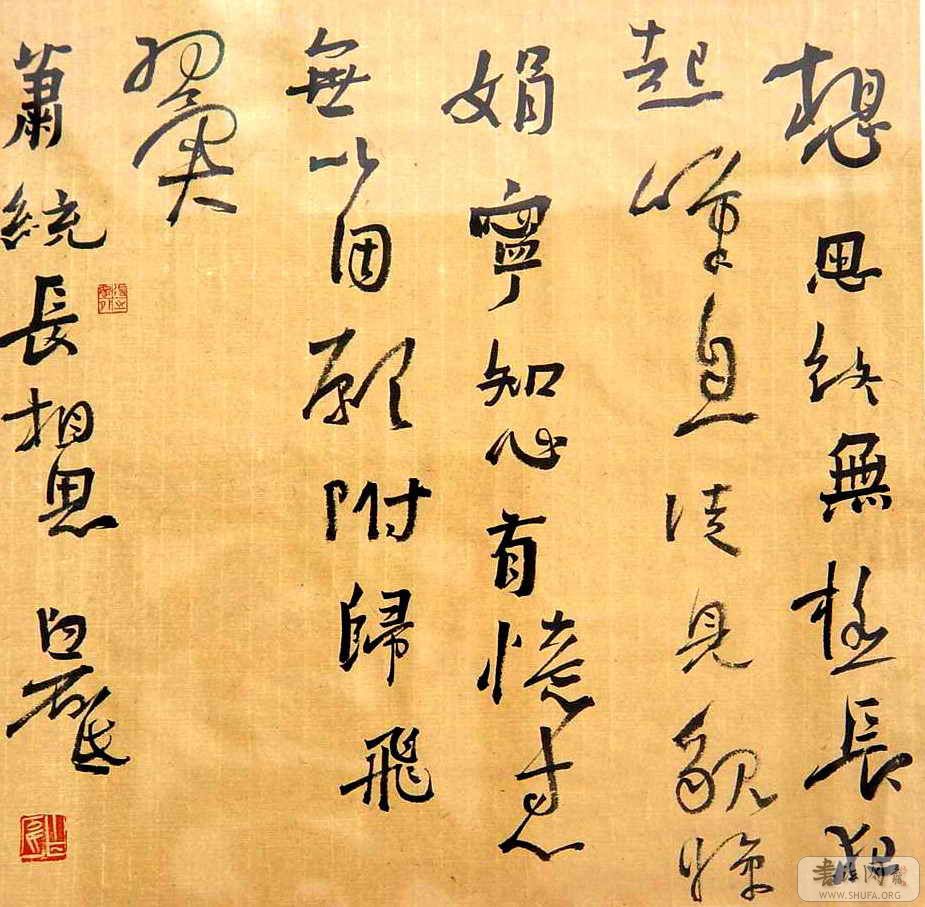 想思終無極長夜
起嘆息徒見貌嬋
娟寧知心有憶寸心
無以因願附歸飛
翼
蕭統長相思 白砥
WWW.SHUFA.ORG